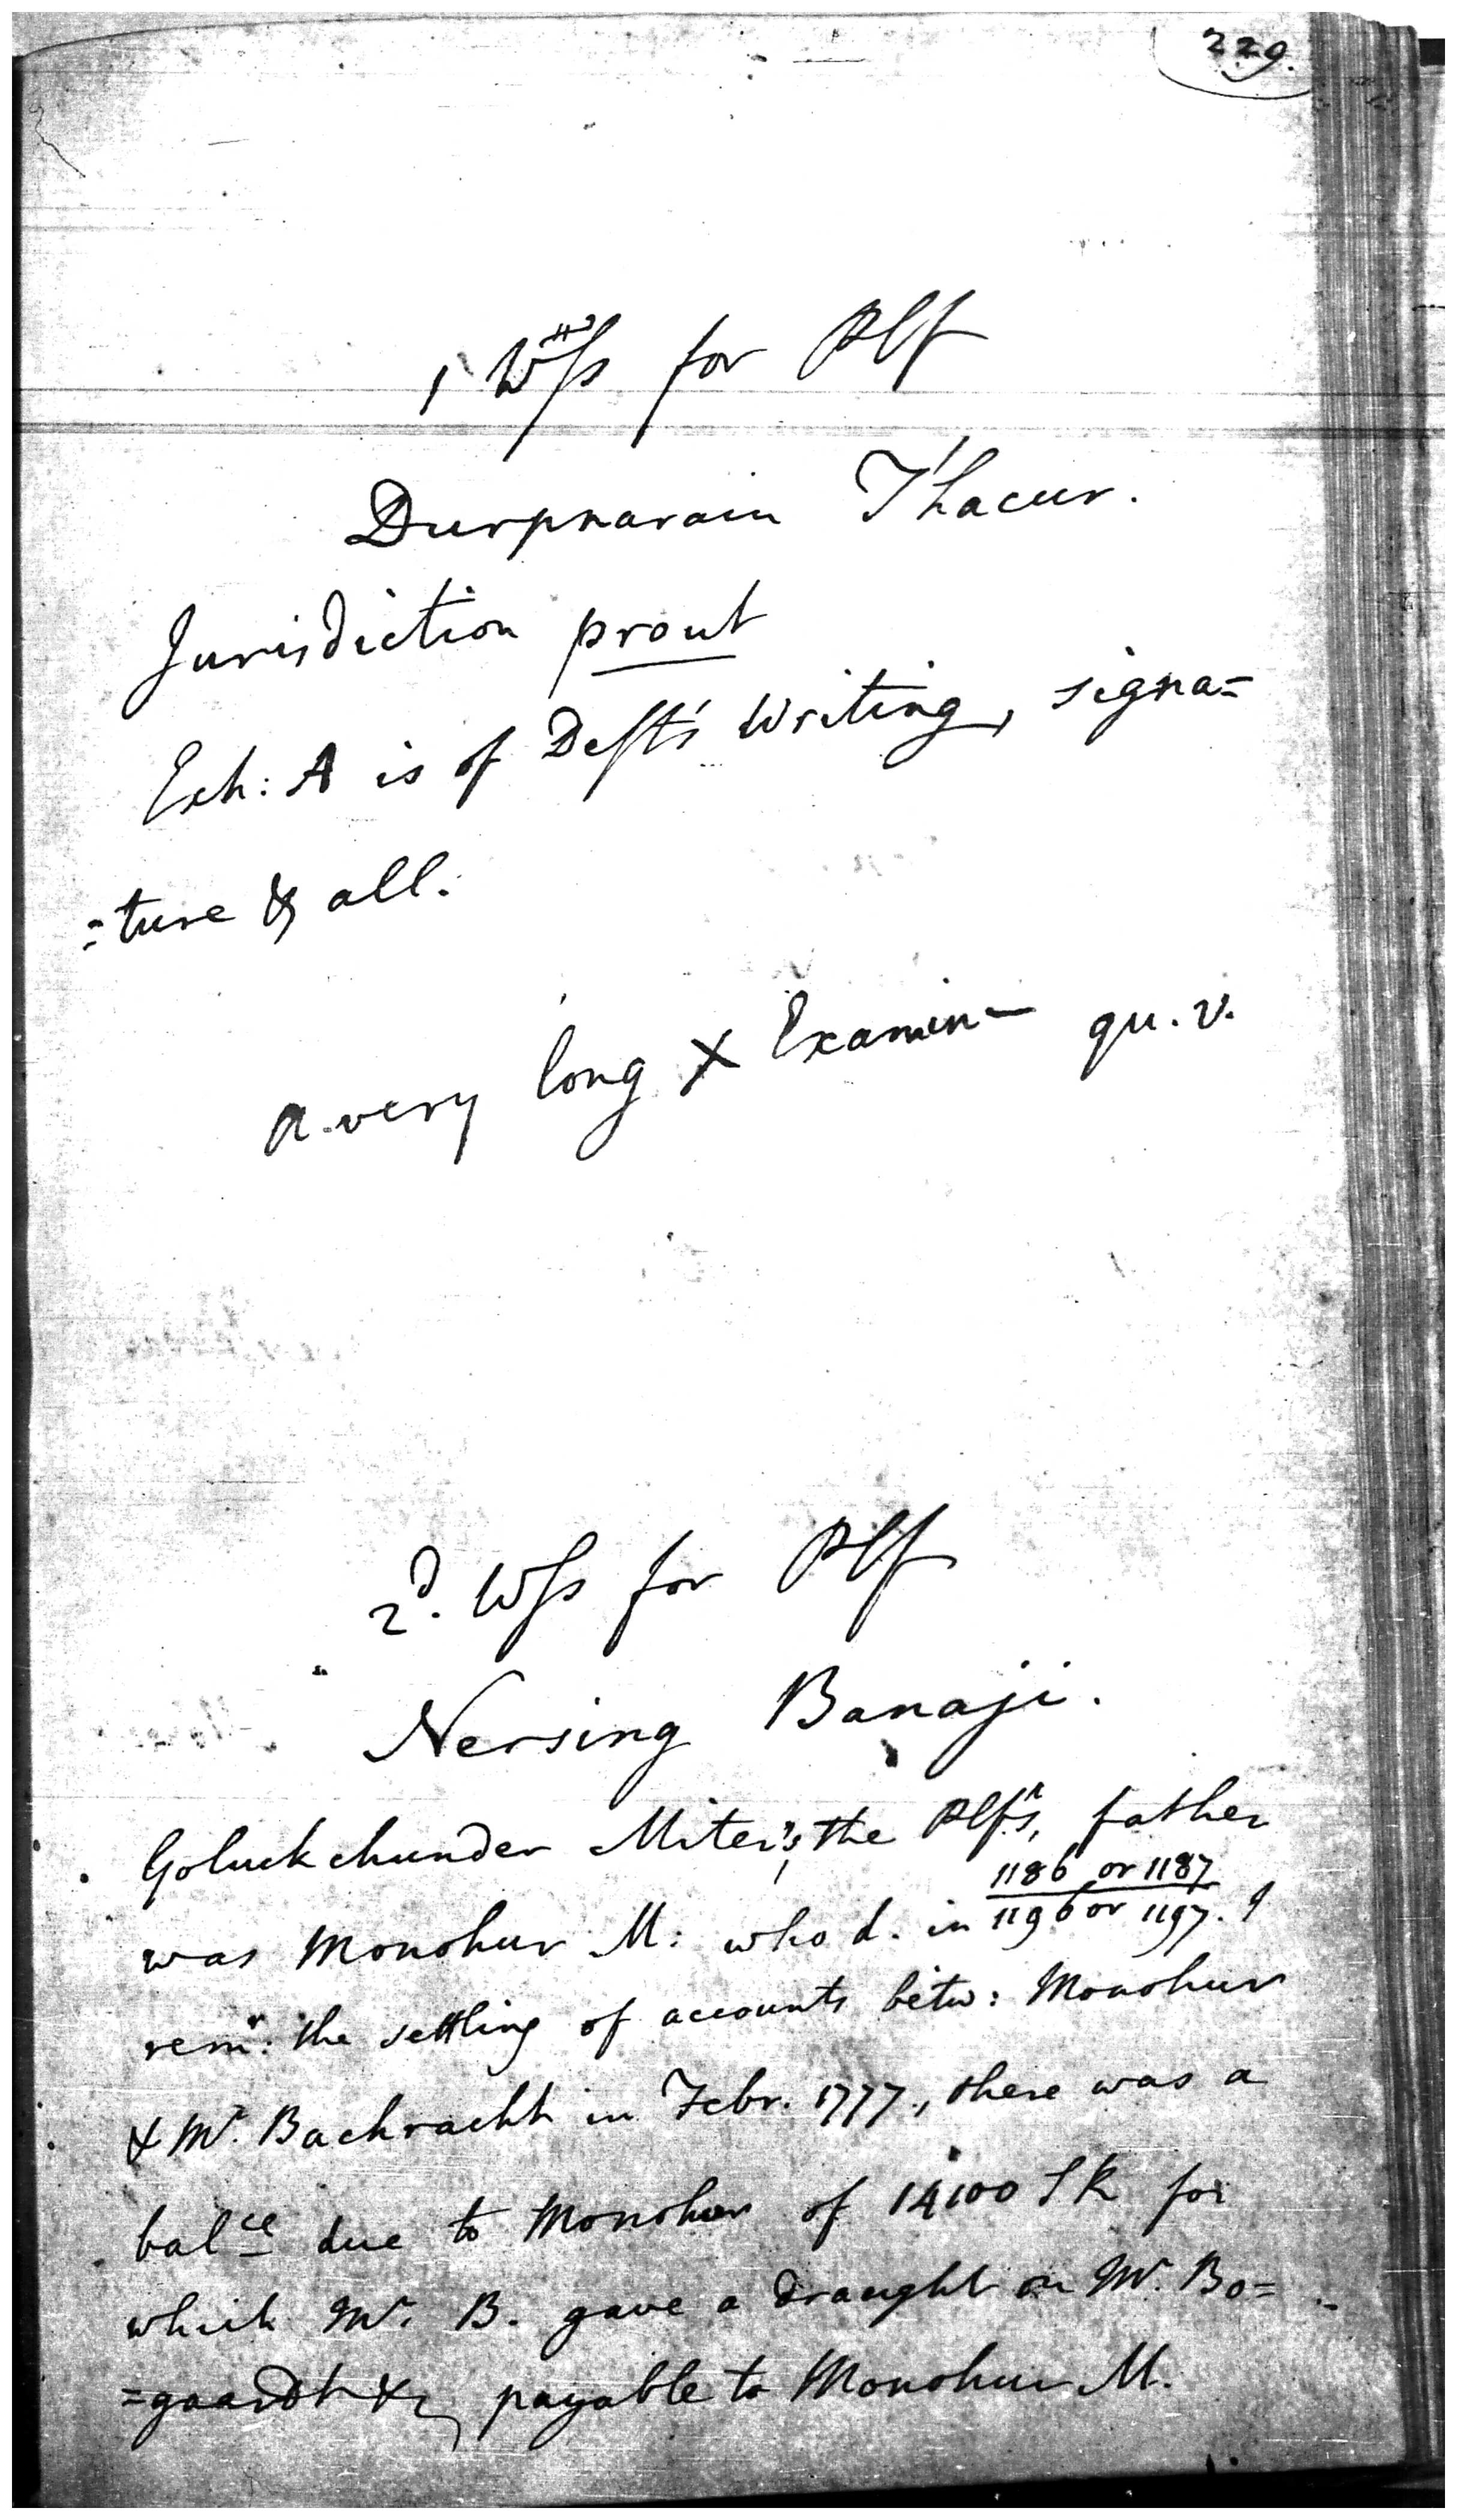 229.
1 Wss for Plf
Durpnarain T'hacur.
Jurisdiction prout
Exh: A is of Deft's Writing, signa=
=ture & all.
A very long X Examin- qu. v.
2d. Wss for Plf
Nersing Banaji.
Goluckchunder Miter's, the Plf's, father
1186 or 1187
was Monohur M: who d. in 1196 or 1197. I
rem: the settling of accounts betw: Monohur
& Mr. Bachracht in Febr. 1777, there was a
balce due to Monohur of 14100 S R for
which Mr. B. gave a draught on Mr. Bo=
=gaardt & payable to Monohur M.